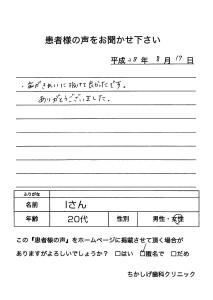 患者様の声をお聞かせ下さい
平成28年8月17日
・歯がきれいに抜けて良かったです。
ありがとうございました。
ふりがな
名前 Iさん
年齢 20代 性別 男性・女性
この『患者様の声』をホームページに掲載させて頂く場合が
ありますがよろしいでしょうか? □はい □匿名で □だめ
ちかしげ歯科クリニック